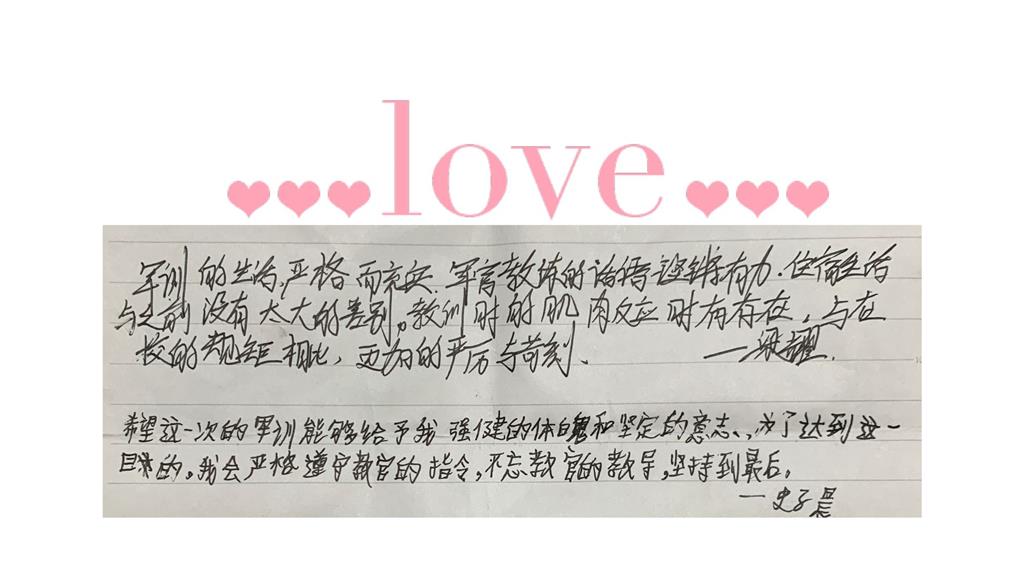 love
军训的生活,严格而充实.军官教练的话语铿锵有力.住宿生活
与之前没有太大的差别。教训时的肌肉反应时有存在,与在
校的规矩相比,更为的严厉与苛刻.
希望这一次的军训能够给予我强健的体魄和坚定的意志、为了达到这一
目的。我会严格遵守教官的指令,不忘教官的教导,坚持到最后。
—史子晨